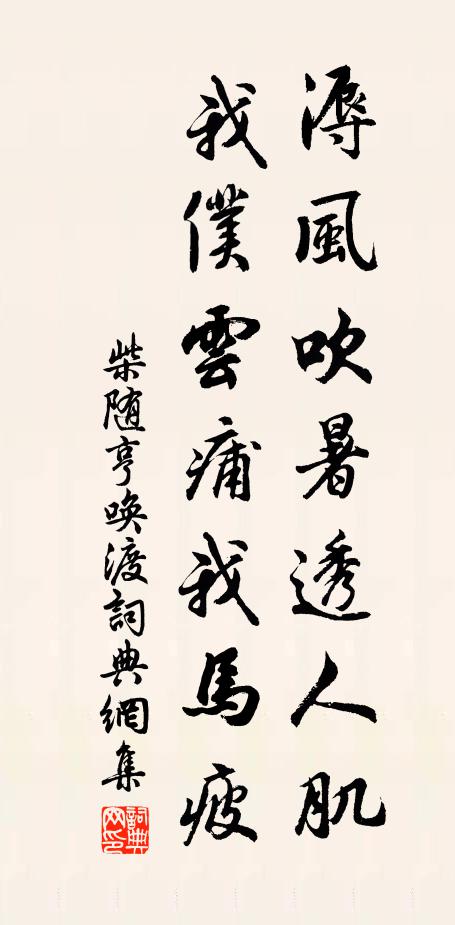 溽風吹暑透人肌
我僕雲痡我馬瘦
柴随亨喚渡詞典網集
詞典網印